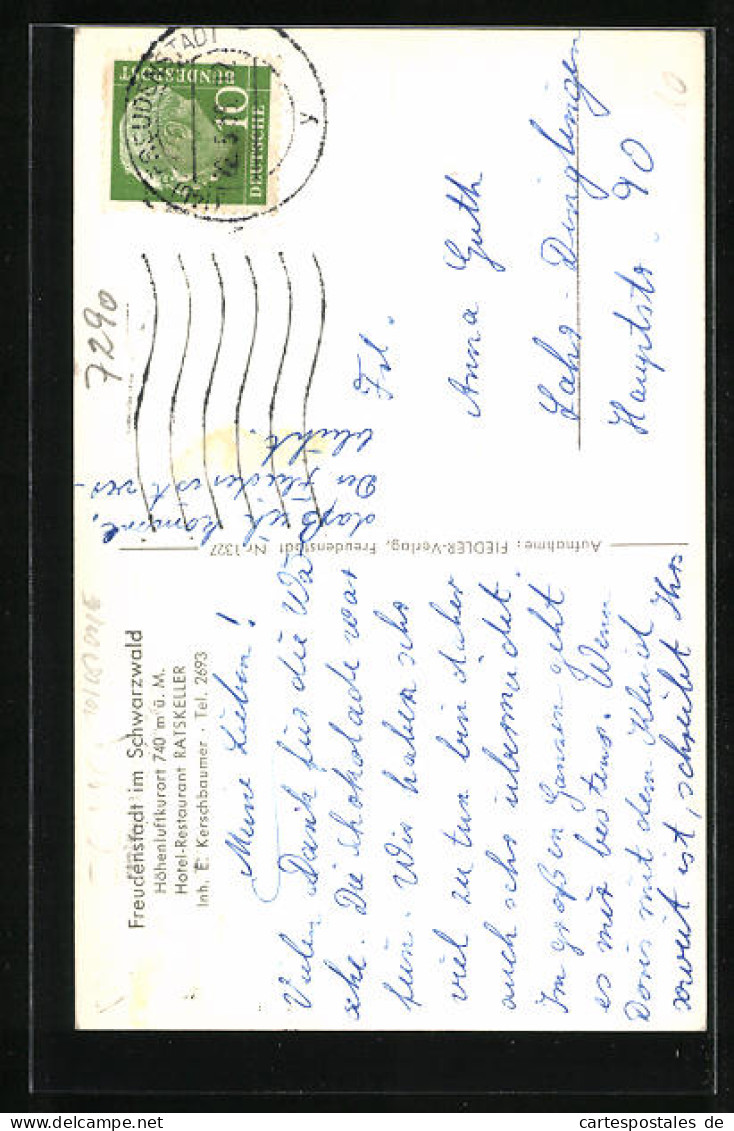 Freudenstadt im Schwarzwald
Höhenluftkurort 740 m ü. M.
Hotel-Restaurant RATSKELLER
Inh. E. Kerschbaumer · Tel. 2693
Meine Lieben!
Vielen Dank für die Wä
sche. Die Schokolade war
fein. Wir haben sehr
viel zu tun bin daher
auch sehr übermüdet.
Im großen Ganzen geht
es mir bestens. Wenn
Doris mit dem Kleid
soweit ist, schreibt Ihr
daß ich komme,
Der Flieder ist ver-
blüht.
Aufnahme: FIEDLER-Verlag, Freudenstadt Nr. 1327
DEUTSCHE
10
BUNDESPOST
FREUDENSTADT
7290
Frl.
Anna Guth
Lahr-Dinglingen
Hauptstr. 90
10
cartespostales.de